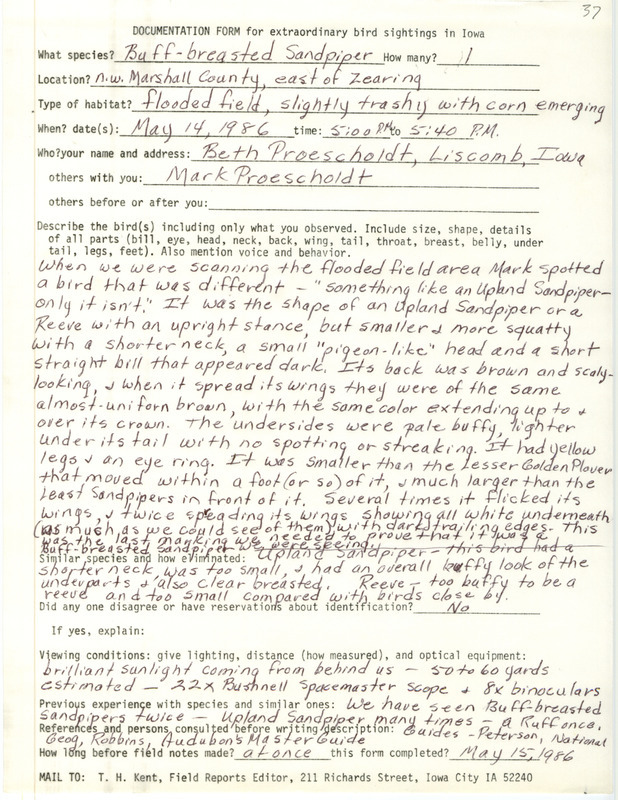 37
DOCUMENTATION FORM for extraordinary bird sightings in Iowa
What species? Buff-breasted Sandpiper How many? 1
Location? n.w. Marshall County, east of Zearing
Type of habitat? flooded field, slightly trashy with corn emerging
When? date(s): May 14, 1986 time: 5:00 P.M. to 5:40 P.M.
Who? your name and address: Beth Proescholdt, Liscomb, Iowa
others with you: Mark Proescholdt
others before or after you:
Describe the bird(s) including only what you observed. Include size, shape, details
of all parts (bill, eye, head, neck, back, wing, tail, throat, breast, belly, under
tail, legs, feet). Also mention voice and behavior.
When we were scanning the flooded field area Mark spotted
a bird that was different - "something like an Upland Sandpiper-
only it isn't." It was the shape of an Upland Sandpiper or a
Reeve with an upright stance, but smaller & more squatty
with a shorter neck, a small "pigeon-like" head and a short
straight bill that appeared dark. Its back was brown and scaly-
looking, & when it spread its wings they were of the same
almost-uniform brown, with the same color extending up to &
over its crown. The undersides were pale buffy, lighter
under its tail with no spotting or streaking. It had yellow
legs & an eye ring. It was smaller than the Lesser Golden Plover
that moved within a foot (or so) of it, & much larger than the
Least Sandpipers in front of it. Several times it flicked its
wings, & twice spreading its wings showing all white underneath
(as much as we could see of them) with dark trailing edges. This
was the last marking we needed to prove that it was a
Buff-breasted Sandpiper we were seeing!
Similar species and how eliminated: Upland Sandpiper - this bird had a
shorter neck, was too small, & had an overall buffy look of the
underparts & also clear breasted. Reeve - too buffy to be a
reeve and too small compared with birds close by.
Did any one disagree or have reservations about identification? No
If yes, explain:
Viewing conditions: give lighting, distance (how measured), and optical equipment:
brilliant sunlight coming from behind us - 50 to 60 yards
estimated - 22x Bushnell Spacemaster Scope & 8x binoculars
Previous experience with species and similar ones: We have seen Buff-breasted
Sandpipers twice - Upland Sandpiper many times - a Ruff once.
References and persons consulted before writing description: Guides - Peterson, National
Geog, Robbins, Audubon's Master Guide
How long before field notes made? at once this form completed? May 15, 1986
MAIL TO: T. H. Kent, Field Reports Editor, 211 Richards Street, Iowa City IA 52240